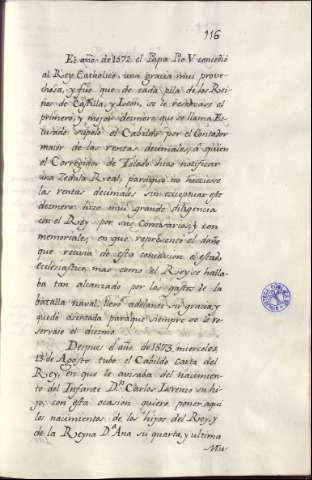 116
El año de 1572 el Papa Pio V concedió
al Rey Catholico una gracia mui prove-
chosa, y fue que de cada pila de los Rei-
nos de Castilla, y Leon, se le reservase el
primero, y mejor dezmero que se llama Es-
cusado supolo el Cabildo por el Contador
maior de las rentas decimales, á quien
el Corregidor de Toledo hizo notificar
una Zedula Real, para que no hiciesse
las rentas decimales sin exceptuar este
dezmero: hizo mui grande diligencia
con el Rey por sus Comisarios, y con
memoriales en que representó el daño
que recivia de esta concesion el estado
ecclesiastico, mas como el Rey se halla-
ba tan alcanzado por los gastos de la
batalla naval, llevó adelante su gracia, y
quedó asentada para que siempre se le re-
servase el diezmo.
Despues el año de 1573, miercoles
13 de Agosto tubo el Cabildo carta del
Rey, en que le avisaba del nacimien-
to del Infante Dn. Carlos Lorenzo su hi-
jo, con esta ocasion quiero poner aqui
los nacimientos de los hijos del Rey, y
de la Reyna Da. Ana su quarta, y ultima
Mu-